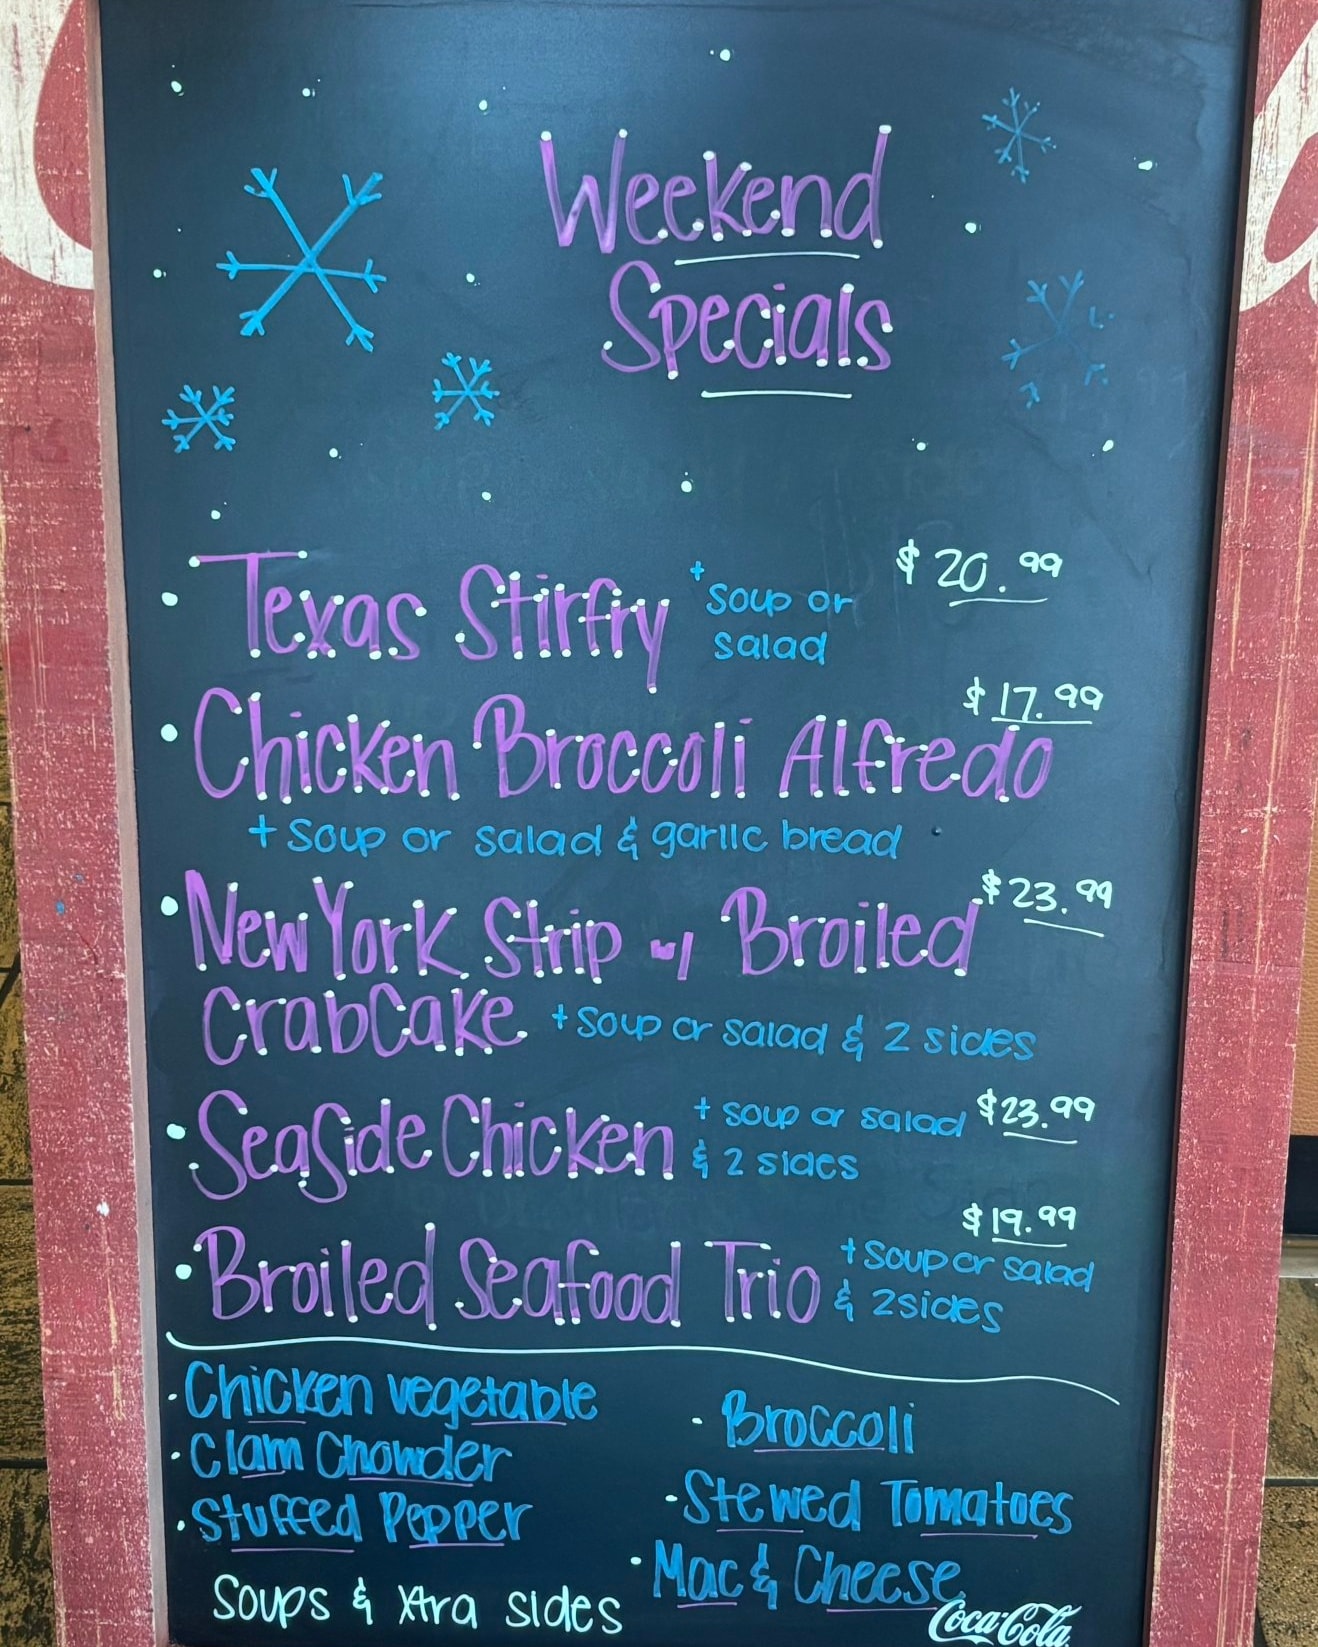 Weekend
Specials
• Texas Stirfry + Soup or salad $20.99
$17.99
• Chicken Broccoli Alfredo
+ Soup or salad & garlic bread
• New York Strip w/ Broiled $23.99
CrabCake + Soup or salad & 2 sides
• Seaside Chicken + soup or salad $23.99
& 2 sides
$19.99
• Broiled Seafood Trio + Soup or salad
& 2 sides
• Chicken vegetable
• Clam Chowder
• Stuffed Pepper
Soups & Xtra sides
• Broccoli
• Stewed Tomatoes
• Mac & Cheese
Coca-Cola